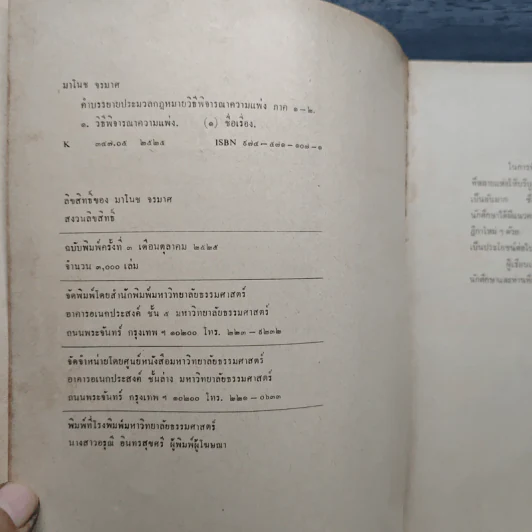 มาโนช จรมาศ
คำบรรยายประมวลกฎหมายวิธีพิจารณาความแพ่ง ภาค ๑-๒.
๑. วิธีพิจารณาความแพ่ง. (๑) ชื่อเรื่อง.
K ๓๔๗.๐๕ ๒๕๒๕ ISBN ๙๗๔-๕๗๑-๑๐๗-๑
ลิขสิทธิ์ของ มาโนช จรมาศ
สงวนลิขสิทธิ์
ฉบับพิมพ์ครั้งที่ ๓ เดือนตุลาคม ๒๕๒๕
จำนวน ๓,๐๐๐ เล่ม
จัดพิมพ์โดยสำนักพิมพ์มหาวิทยาลัยธรรมศาสตร์
อาคารอเนกประสงค์ ชั้น ๕ มหาวิทยาลัยธรรมศาสตร์
ถนนพระจันทร์ กรุงเทพ ฯ ๑๐๒๐๐ โทร. ๒๒๓-๙๒๓๒
จัดจำหน่ายโดยศูนย์หนังสือมหาวิทยาลัยธรรมศาสตร์
อาคารอเนกประสงค์ ชั้นล่าง มหาวิทยาลัยธรรมศาสตร์
ถนนพระจันทร์ กรุงเทพ ฯ ๑๐๒๐๐ โทร. ๒๒๑-๐๖๓๓
พิมพ์ที่โรงพิมพ์มหาวิทยาลัยธรรมศาสตร์
นางสาวอรุณี อินทรสุขศรี ผู้พิมพ์ผู้โฆษณา